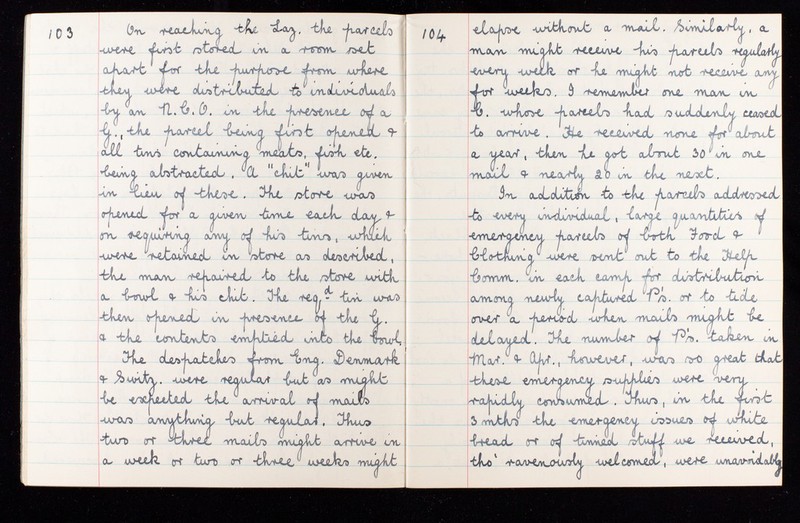 103
On reaching the Laz. the parcels
were first stored in a room set
apart for the purpose from where
they were distributed to individuals
by an N.C.O. in the presence of a
G., the parcel being first opened &
all tins containing meats, fish etc.
being abstracted. A "chit" was given
in lieu of these. The store was
opened for a given time each day &
on requiring any of his tins, which
were retained in store as described,
the man repaired to the store with
a bowl & his chit. The reqd tin was
then opened in presence of the G.
& the contents emptied into the bowl.
The despatches from Eng. Denmark
& Switz. were regular but as might
be expected the arrival of mails
was anything but regular. Thus
two or three mails might arrive in
a week or two or three weeks might
104
elapse without a mail. Similarly, a
man might receive his parcels regularly
every week or he might not receive any
for weeks. I remember one man in
C. whose parcels had suddenly ceased
to arrive. He received none for about
a year, then he got about 30 in one
mail & nearly 20 in the next.
In addition to the parcels addressed
to every individual, large quantities of
emergency parcels of both Food &
Clothing were sent out to the Help
Comm. in each camp for distribution
among newly captured P's. or to tide
over a period when mails might be
delayed. The number of P's. taken in
Mar. & Apr., however, was so great that
these emergency supplies were very
rapidly consumed. Thus, in the first
3 mths the emergency issues of white
bread or of tinned stuff we received,
tho' ravenously welcomed, were unavoidably